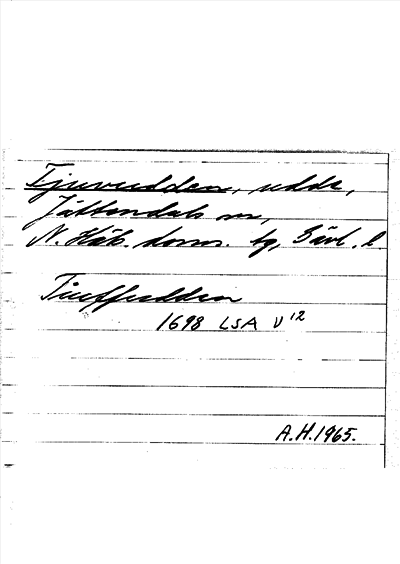 Tjuvudden, udde,
Jättendals sn,
N. Häls. doms. tg, Gävl. l.
Tiuffudden
1698 LSA V 12
A.H. 1965.